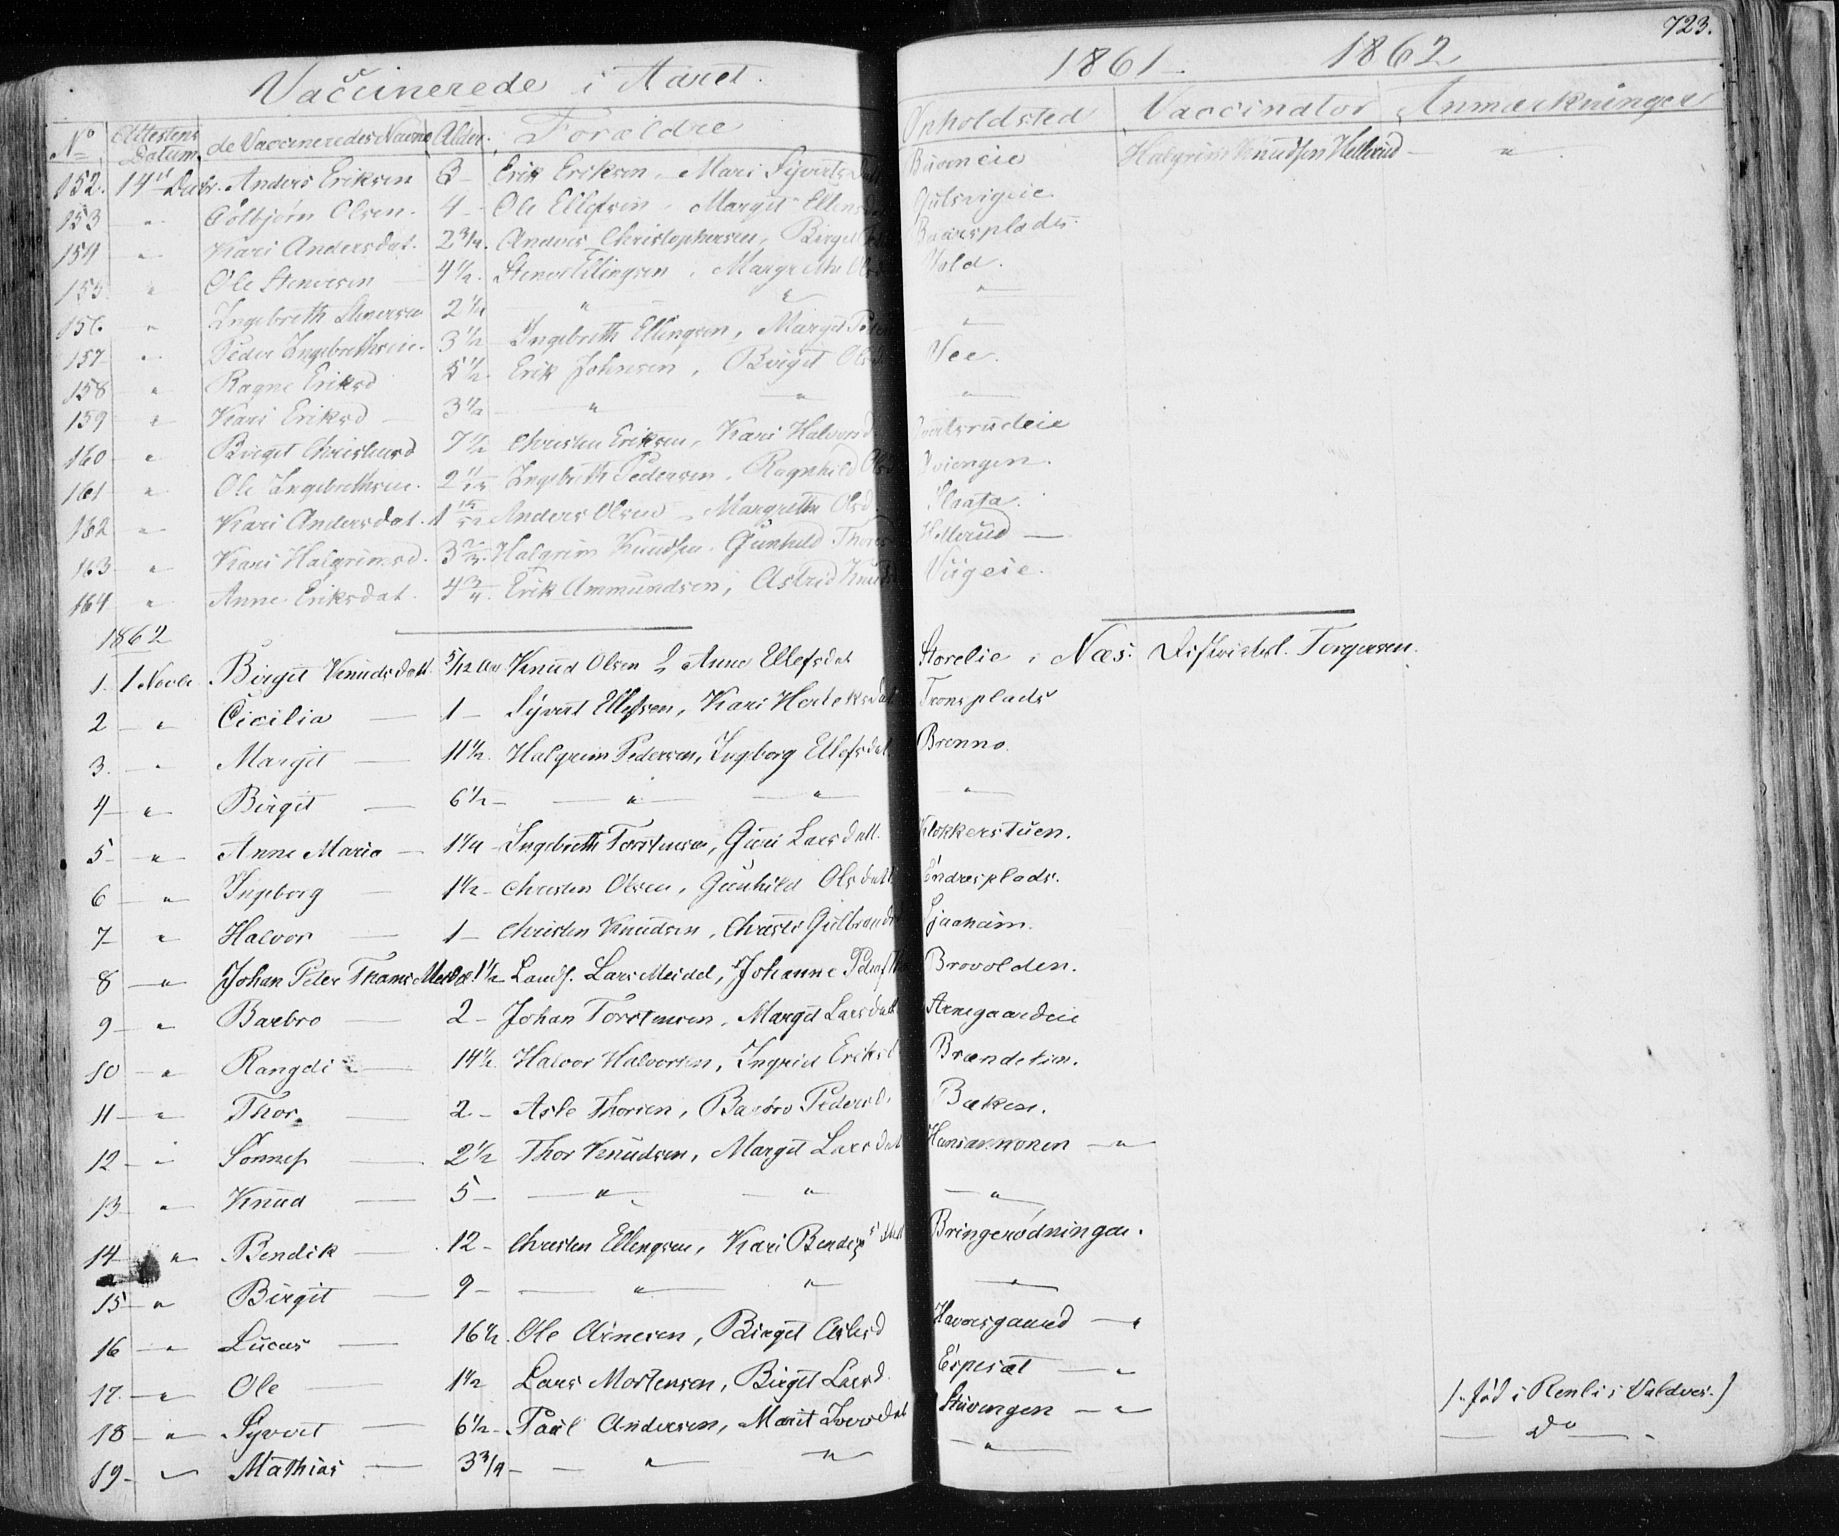 723.
Vaccinerede i Aaret. 1861 - 1862
No Attestens Datum. de Vaccineredes Navne Alder. Forældre Opholdsted Vaccinator Anmærkninger
152. 14 Decbr. Anders Eriksen 6 - Erik Eriksen, Mari Syverts Halgrim Knudsen Hellerud - "
153 " Colbjørn Olsen. 4 - Ole Ellefsen, Margit Ellens Gulsvigeie
154 " Kari Andersdat. 2 3/4. Anders Christophersen, Birgit Baarsplads.
155 " Ole Stenersen 4 1/2. Stener Ellingsen, Margrethe Ols Vold.
156. " Ingebreth Stenersen 2 1/4 " " "
157 " Peder Ingebrethsen. 3 1/2 Ingebreth Ellingsen, Margit Peders "
158 " Ragne Eriksd 5 1/2. Erik Johnsen, Birgit Olsd Vee.
159 " Kari Eriksd 3 1/2 " " "
160 " Birget Christensd 7 1/2 Christen Eriksen, Kari Halvorsd
161 " Ole Ingebrethsen. 2 Ingebreth Pedersen, Ragnhild Ols
162 " Kari Andersdat. 1 Anders Olsen, Margrethe Olsd Slaata.
163 " Kari Halgrimsd. 3 Halgrim Knudsen. Gunhild Thores Hellerud
164 " Anne Eriksdat. 4 3/4. Erik Ammundsen, Astrid Knuds Viigeie.
1862
1. 1 Novbr. Birgit Knudsdatt. 5/12 Knud Olsen & Anne Ellefsdat Storelie i Næs. Distriktsl. Torgersen.
2 " Cicilia 1 - Syvert Ellefsen, Kari Herleksdat Tronsplads
3. " Margit 11 1/2. Halgrim Pedersen, Ingeborg Ellefsdat Brenno.
4 " Birgit 6 1/2 - " " "
5 " Anne Maria 1 1/4 - Ingebreth Torstensen, Guri Larsdatt. Klokkerstuen.
6 " Ingeborg 1 1/2 - Christen Olsen, Gunhild Olsdatt. Endresplads.
7 " Halvor 1 - Christen Knudsen, Christi Gulbrands
8 " Johan Peter Meidel 1 1/2 Landh. Lars Meidel, Johanne Brovolden.
9 " Barbro 2 - Johan Torstensen, Margit Larsdatt Arnegaardeie
10 " Rangdi 14 1/2 Halvor Halvorsen, Ingrid Eriksd
11 " Thor. 2 - Asle Thorsen, Barbro Pedersd. Bakken.
12 " Sønnef 2 1/2 Thor Knudsen, Margit Larsdat "
13 " Knud 5 - " " "
14 " Bendik 12 - Christen Ellengsen, Kari
15 " Birgit 9 - " " "
16 " Lucas 16 1/2. Ole Arnesen, Birgit Aslesd Haversgaard "
17. " Ole 1 1/2 Lars Mortensen, Birgit Larsd. Espeset "
18 " Syvert 6 1/2 - Paal Andersen, Marit Iversdat Stuvengen " /: fød i Renli i Valdres. /
19 - " Mathias 3 3/4 - " " " Do